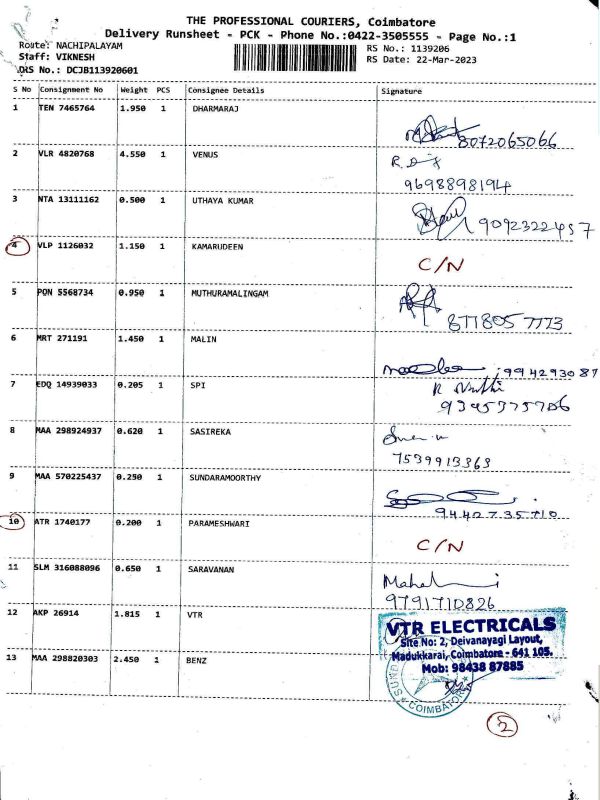 THE PROFESSIONAL COURIERS, Coimbatore
Delivery Runsheet - PCK - Phone No.:0422-3505555 - Page No.:1
Route: NACHIPALAYAM
Staff: VIKNESH
DRS No.: DCJB113920601
RS No.: 1139206
RS Date: 22-Mar-2023
S No Consignment No Weight PCS Consignee Details Signature
1 TEN 7465764 1.950 1 DHARMARAJ
8072065066
2 VLR 4820768 4.550 1 VENUS
9698898194
3 NTA 13111162 0.500 1 UTHAYA KUMAR
9092322457
4 VLP 1126032 1.150 1 KAMARUDEEN
C/N
5 PON 5568734 0.950 1 MUTHURAMALINGAM
8778057773
6 MRT 271191 1.450 1 MALIN
994293087
7 EDQ 14939033 0.205 1 SPI
9395375706
8 MAA 298924937 0.620 1 SASIREKA
7539913363
9 MAA 570225437 0.250 1 SUNDARAMOORTHY
9442735710
10 ATR 1740177 0.200 1 PARAMESHWARI
C/N
11 SLM 316088096 0.650 1 SARAVANAN
9791710826
12 AKP 26914 1.815 1 VTR
VTR ELECTRICALS
Site No: 2, Deivanayagi Layout,
Madukkarai, Coimbatore - 641 105.
Mob: 98438 87885
13 MAA 298820303 2.450 1 BENZ
COIMBATORE
2